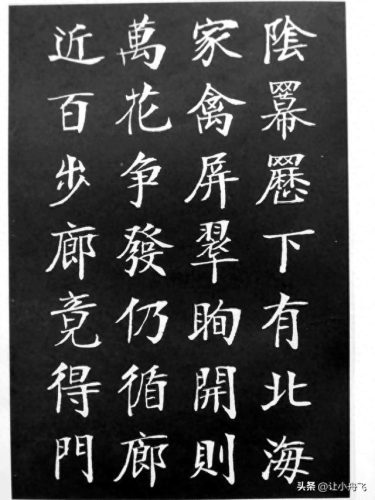 陰羃䍥下有北海
家禽屏翠眴開則
萬花争發仍循廊
近百步廊竟得門
头条 @让小舟飞